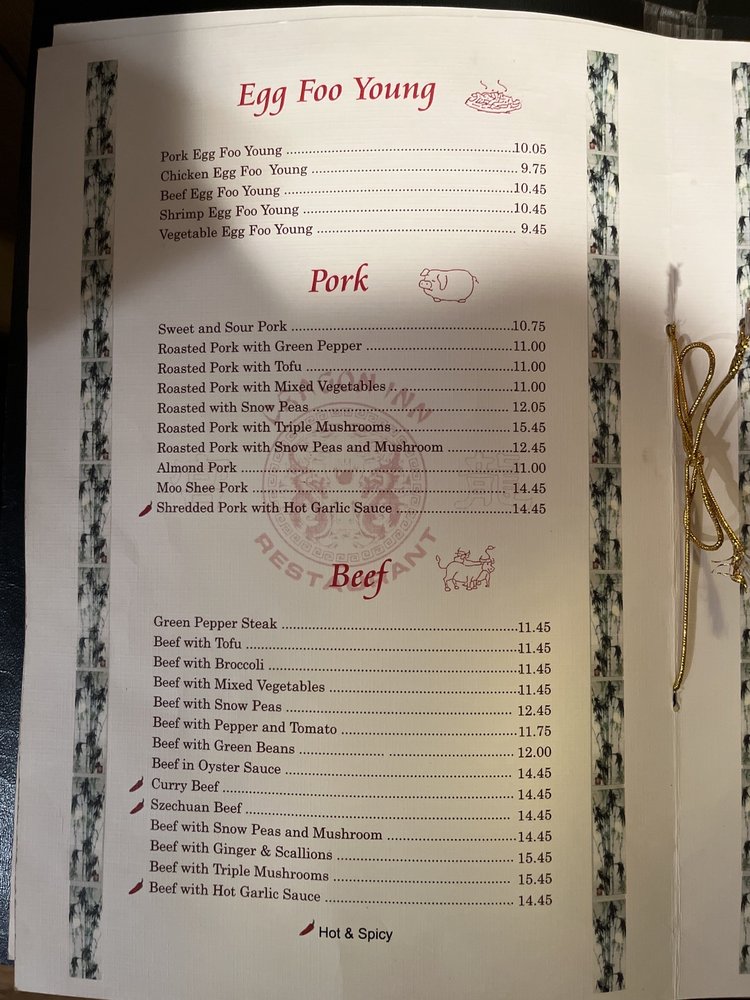 Egg Foo Young
Pork Egg Foo Young ........................................ 10.05
Chicken Egg Foo Young ........................................ 9.75
Beef Egg Foo Young ........................................ 10.45
Shrimp Egg Foo Young ........................................ 10.45
Vegetable Egg Foo Young ........................................ 9.45
Pork
Sweet and Sour Pork ........................................ 10.75
Roasted Pork with Green Pepper ........................................ 11.00
Roasted Pork with Tofu ........................................ 11.00
Roasted Pork with Mixed Vegetables .. ........................................ 11.00
Roasted with Snow Peas ........................................ 12.05
Roasted Pork with Triple Mushrooms ........................................ 15.45
Roasted Pork with Snow Peas and Mushroom .................... 12.45
Almond Pork ........................................ 11.00
Moo Shee Pork ........................................ 14.45
Shredded Pork with Hot Garlic Sauce ........................................ 14.45
INN
RESTAURANT
Beef
Green Pepper Steak ........................................ 11.45
Beef with Tofu ........................................ 11.45
Beef with Broccoli ........................................ 11.45
Beef with Mixed Vegetables ........................................ 11.45
Beef with Snow Peas ........................................ 12.45
Beef with Pepper and Tomato ........................................ 11.75
Beef with Green Beans ........................................ 12.00
Beef in Oyster Sauce ........................................ 14.45
Curry Beef ........................................ 14.45
Szechuan Beef ........................................ 14.45
Beef with Snow Peas and Mushroom ........................................ 14.45
Beef with Ginger & Scallions ........................................ 15.45
Beef with Triple Mushrooms ........................................ 15.45
Beef with Hot Garlic Sauce ........................................ 14.45
Hot & Spicy